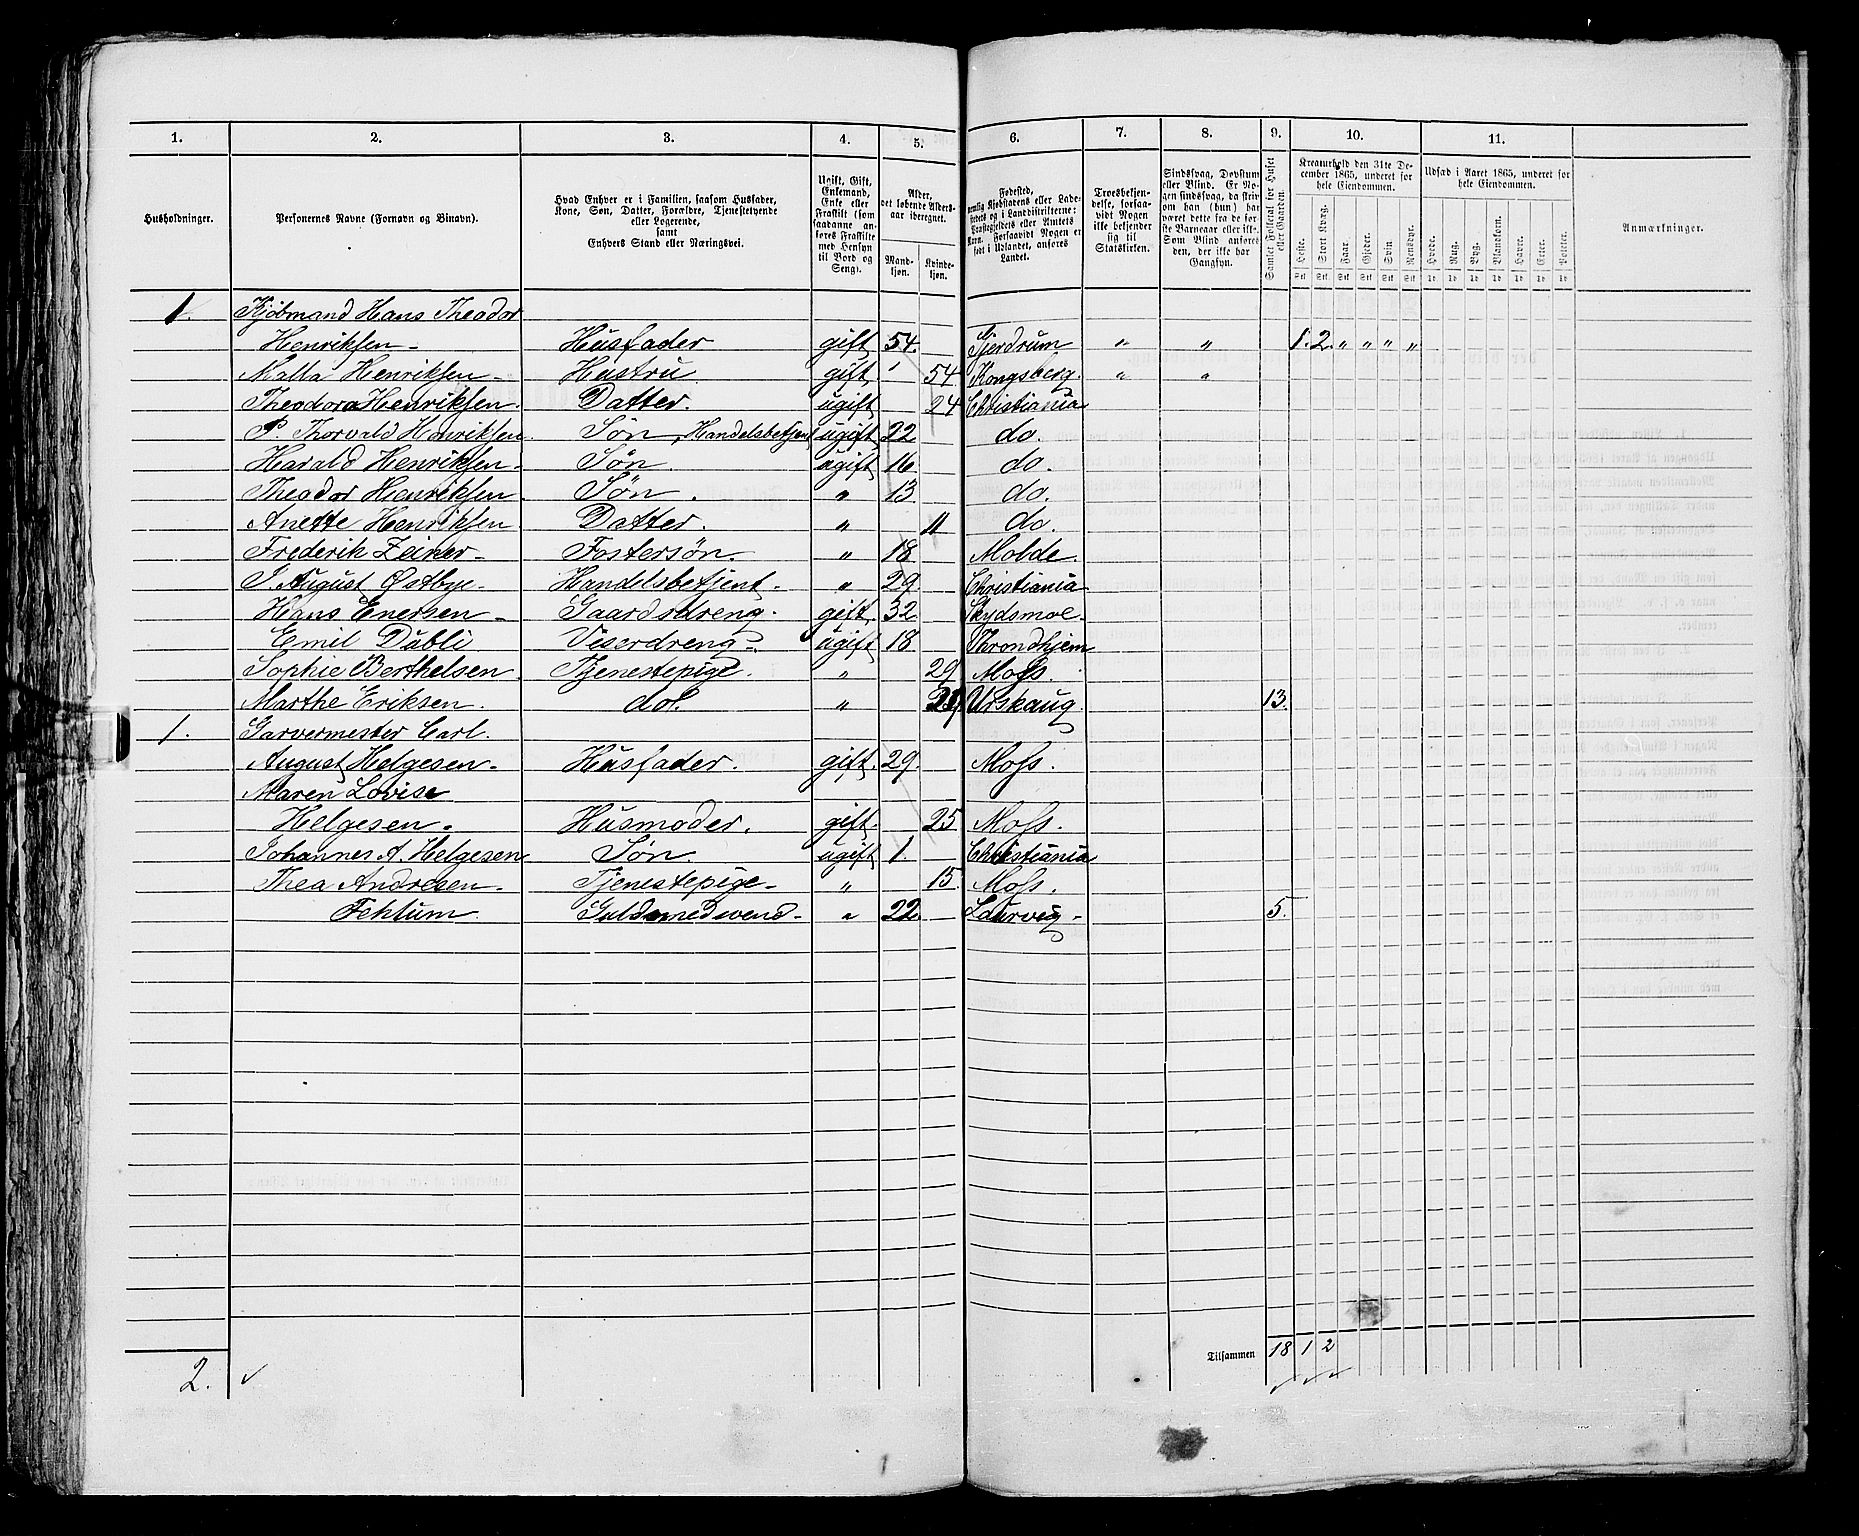 1. 2. 3. 4. 5. 6. 7. 8. 9. 10. 11.
Husholdninger.
Personernes Navne (Fornavn og Binavn).
Hvad Enhver er i Familien, saasom Husfader,
Kone, Søn, Datter, Forældre, Tjenestetyende
eller Logerende,
samt
Enhvers Stand eller Næringsvei.
Ugift, Gift,
Enkemand,
Enke eller
Fraskilt (som
saadanne an-
føres Fraskilte
med Hensyn
til Bord og
Seng).
Alder,
det løbende Alders-
aar iberegnet.
Mand-
kjøn.
Kvinde-
kjøn.
Fødested,
nemlig Kjøbstadens eller Lade-
stedets og i Landdistrikterne:
Præstegjeldets eller Amtets
Navn. Forsaavidt Nogen er
født i Udlandet, anføres
Landet.
Troesbekjen-
delse, forsaa-
vidt Nogen
ikke bekjender
sig til
Statskirken.
Sindssvag, Døvstum
eller Blind. Er No-
gen sindssvag, da skriv
om han (hun) har
været dette fra de før-
ste Barneaar eller ikke.
Som Blind anføres
den, der ikke har
Gangsyn.
Samlet Folketal for Huset
eller Gaarden.
Kreaturhold den 31te De-
cember 1865, underet for
hele Eiendommen.
Heste. Stort Kvæg. Faar. Gjeder. Svin. Rensdyr.
Stk Stk Stk Stk Stk Stk
Udsæd i Aaret 1865, underet for
hele Eiendommen.
Hvede. Rug. Byg. Blandkorn. Havre. Erter. Poteter.
Td Td Td Td Td Td Td
Anmærkninger.
1. Kjöbmand Hans Theodor
Henriksen - Husfader gift 54. Gjerdrum " " 1. 2. " " " "
Malla Henriksen - Hustru gift " 54 Kongsberg. " "
Theodora Henriksen. Datter. ugift 24 Christiania
P. Thorvald Henriksen. Søn, Handelsbetjent ugift 22 do.
Harald Henriksen - Søn. ugift 16 do.
Theodor Henriksen Søn. " 13 do.
Anette Henriksen Datter. " 11 do.
Frederik Zeiner - Fostersøn. " 18 Molde.
J. August Østbye - Handelsbetjent. " 29. Christiania
Hans Enersen - Gaardsdreng. gift. 32 Skydsmoe
Emil Dübli Viserdreng - ugift 18 Throndhjem
Sophie Berthelsen Tjenestepige. " 29 Moss.
Marthe Eriksen. do. " Urskaug 13.
1. Garvermester Carl.
August Helgesen - Husfader. gift. 29. Moss.
Maren Lovise
Helgesen - Husmoder. gift. 25 Moss.
Johannes A. Helgesen Søn. ugift 1. Christiania
Thea Andresen - Tjenestepige - " 15. Moss.
Fektum Guldsmedsvend - " 22 Laurvig - 5.
Tilsammen 18 1 2
2. ✓